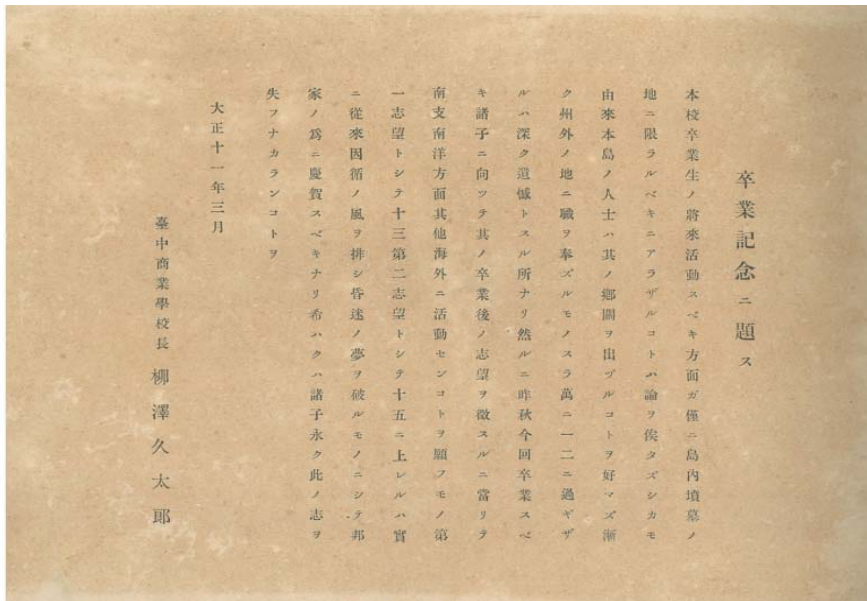 卒業記念ニ題ス
本校卒業生ノ將來活動スベキ方面ガ僅ニ島內墳墓ノ
地ニ限ラルベキニアラザルコトハ論ヲ俟タズシカモ
由來本島ノ人士ハ其ノ鄉關ヲ出ヅルコトヲ好マズ漸
ク州外ノ地ニ職ヲ奉ズルモノスラ萬ニ一二ニ過ギザ
ルハ深ク遺憾トスル所ナリ然ルニ昨秋今回卒業スベ
キ諸子ニ向ツテ其ノ卒業後ノ志望ヲ徵スルニ當リテ
南支南洋方面其他海外ニ活動センコトヲ願フモノ第
一志望トシテ十三第二志望トシテ十五ニ上レルハ實
ニ從來因循ノ風ヲ排シ昏迷ノ夢ヲ破ルモノニシテ邦
家ノ爲ニ慶賀スベキナリ希ハクハ諸子永ク此ノ志ヲ
失フナカランコトヲ
大正十一年三月
臺中商業學校長 柳澤久太郎